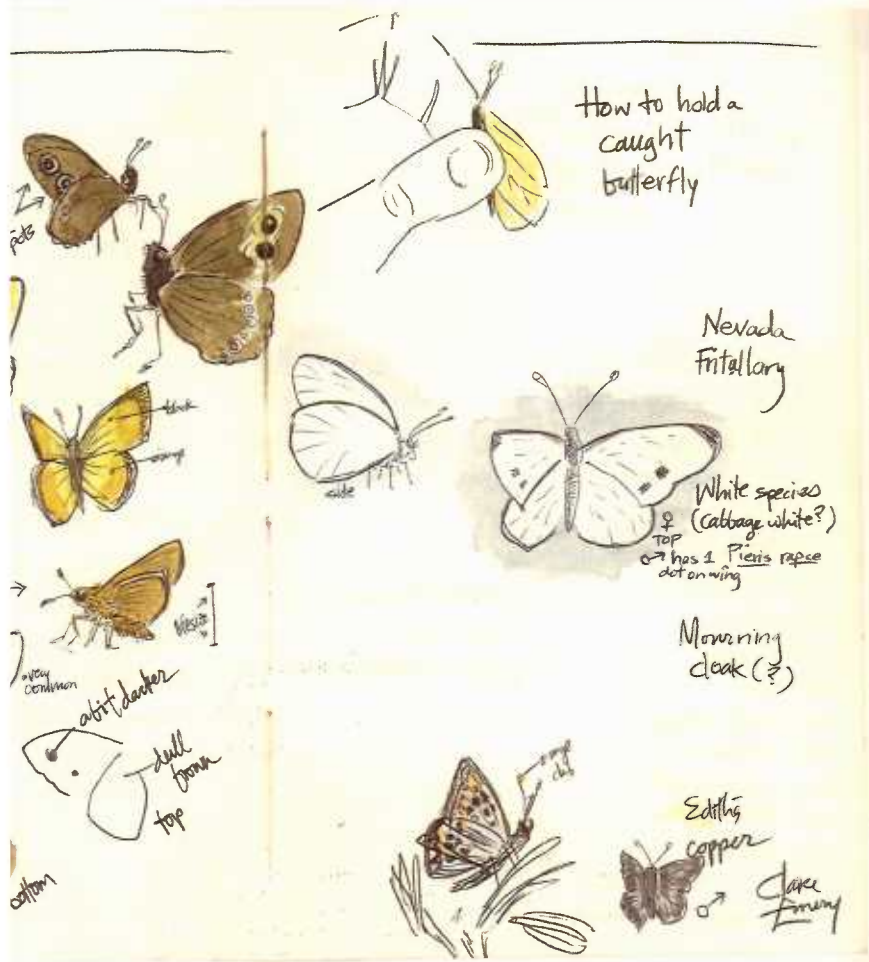 How to hold a
caught
butterfly
Nevada
Fritallary
black
orange
side
White species
(cabbage white?)
♀
TOP
♂ has 1 Pieris rapae
dot on wing
very
common
Mourning
cloak (?)
a bit darker
dull
brown
top
orange
club
Edith's
copper
♂
Clare
Emery
bottom